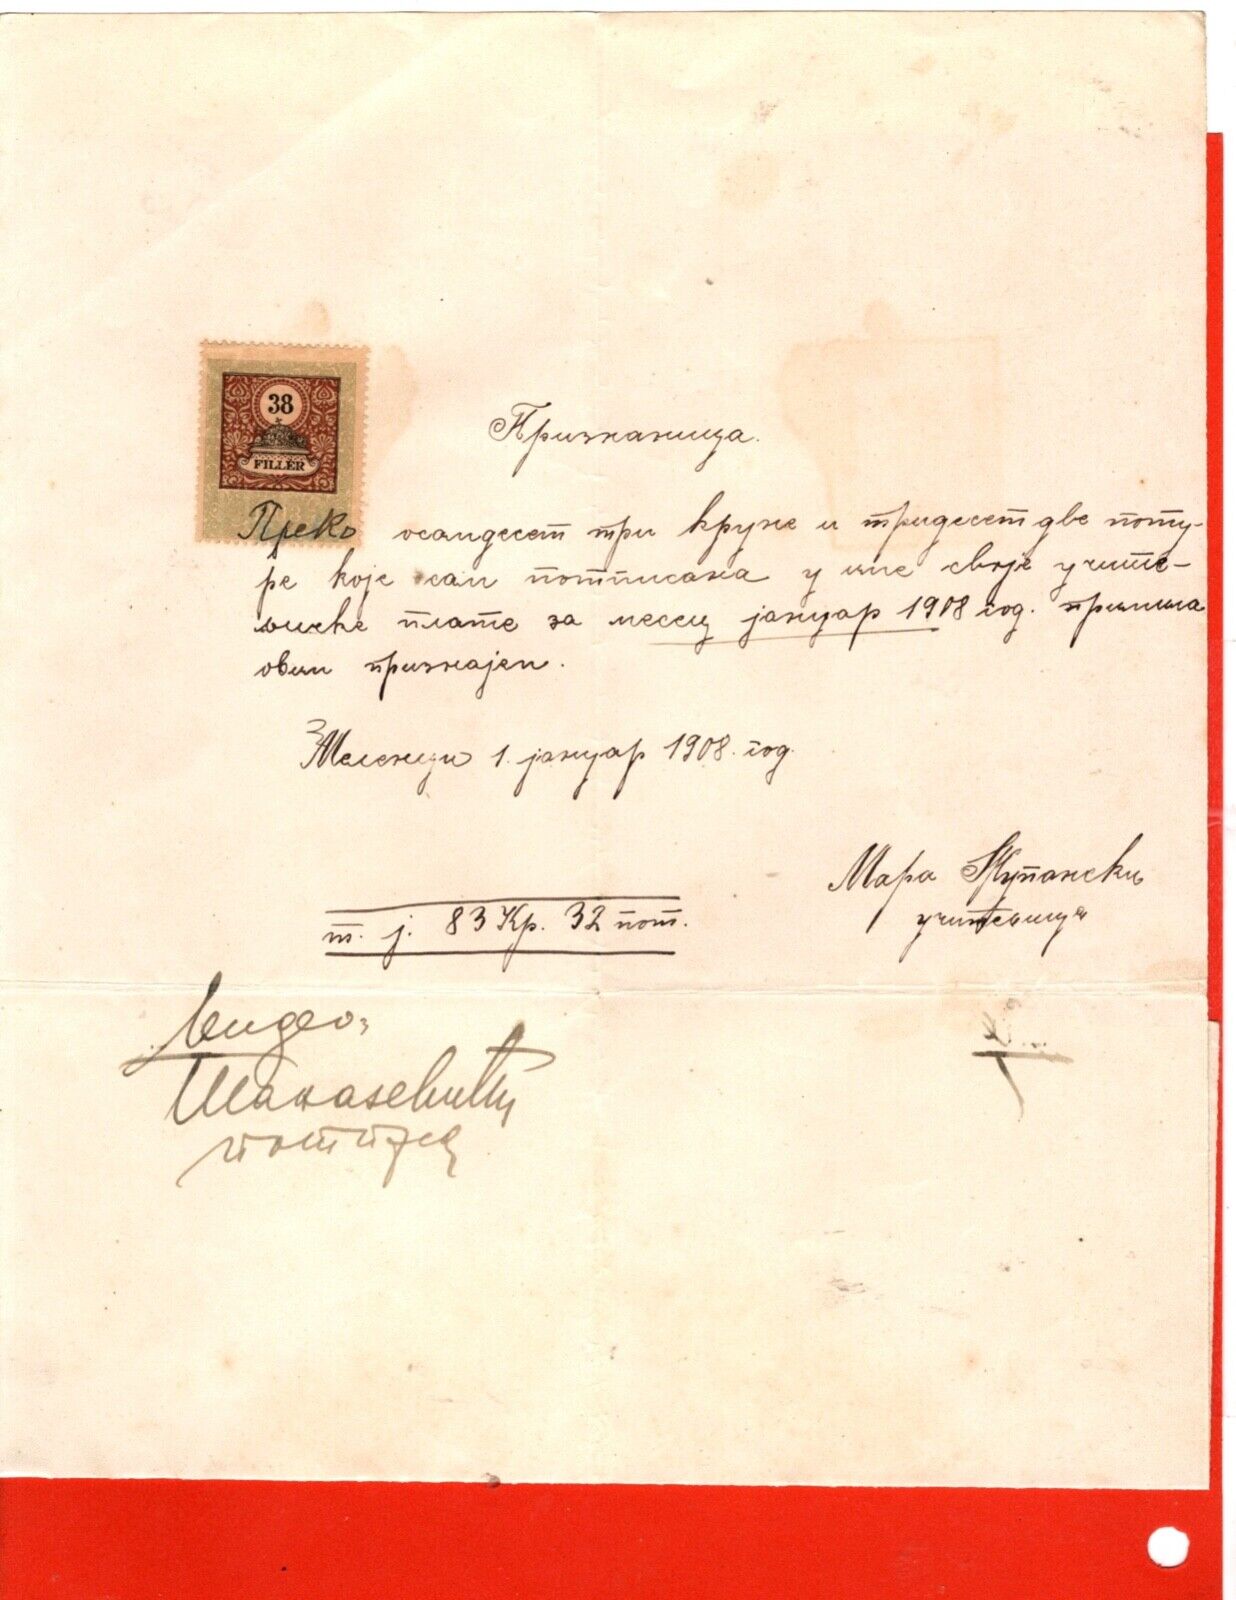 38
FILLÉR
Признаница.
Преко осамдесет три круне и тридесет две поту-
ре које сам потписана у име своје учите-
љиске плате за месец јануар 1908 год. примила
овим признајем.
Меленци 1. јануар 1908. год.
Мара Жупански
учитељица
т. ј. 83 Кр. 32 пот.
Видео: